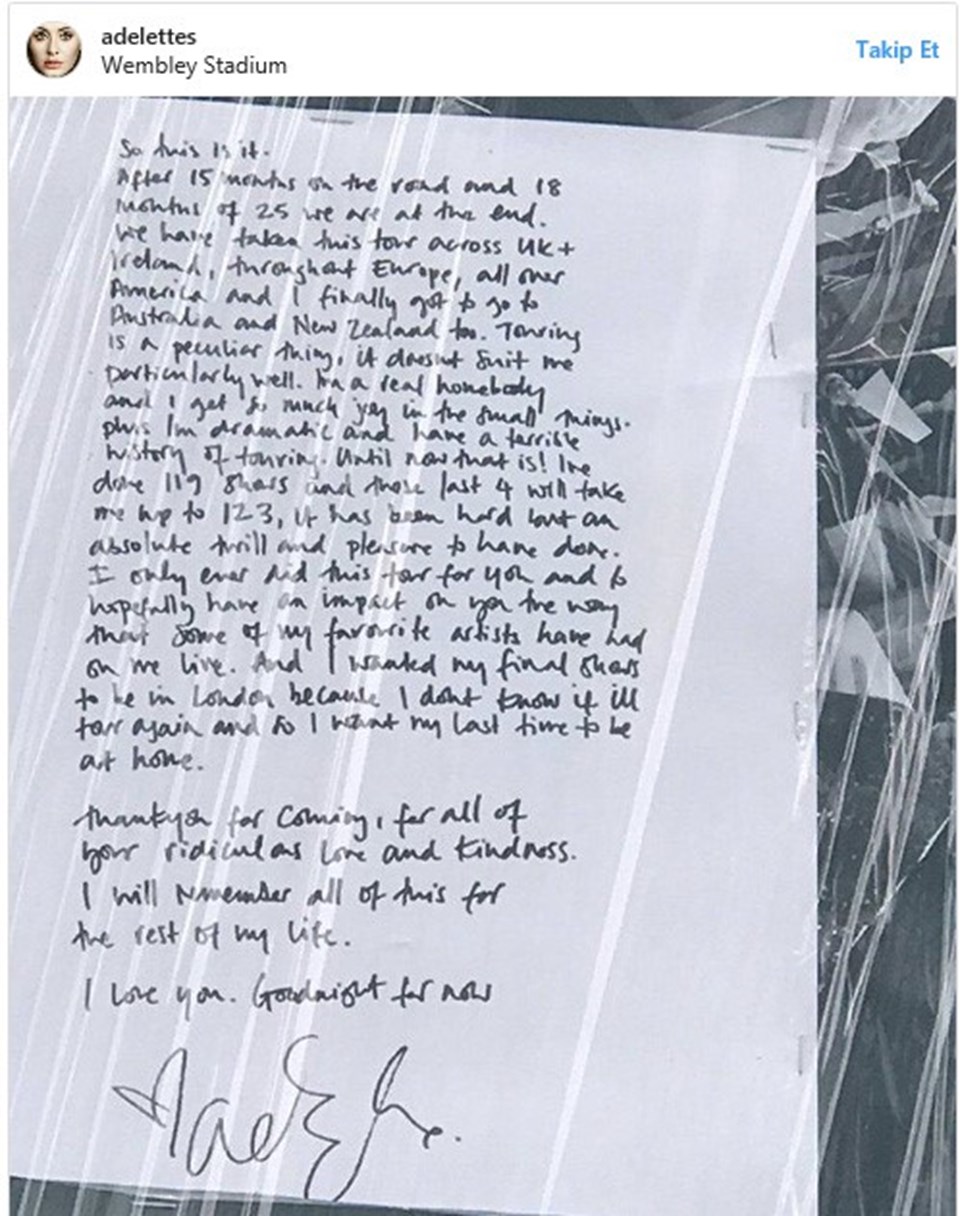 adelettes
Wembley Stadium
Takip Et
So this is it.
After 15 months on the road and 18
months of 25 we are at the end.
We have taken this tour across UK +
Ireland, throughout Europe, all over
America and I finally got to go to
Australia and New Zealand too. Touring
is a peculiar thing, it doesnt suit me
particularly well. Im a real homebody
and I get so much joy in the small things.
plus Im dramatic and have a terrible
history of touring. Until now that is! Ive
done 119 shows and these last 4 will take
me up to 123, it has been hard but an
absolute thrill and pleasure to have done.
I only ever did this tour for you and to
hopefully have an impact on you the way
that some of my favourite artists have had
on me live. And I wanted my final shows
to be in London because I dont know if ill
tour again and so I want my last time to be
at home.
Thankyou for coming, for all of
your ridiculous love and kindness.
I will remember all of this for
the rest of my life.
I love you. Goodnight for now
Adele